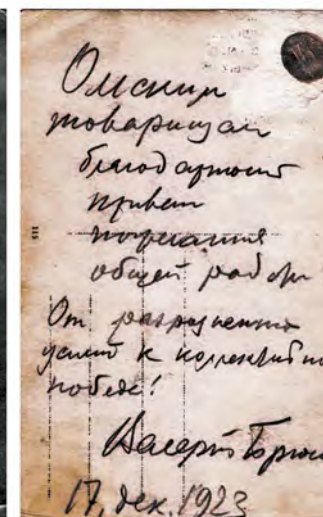 Омским
товарищам
благодарность
привет
пожелания
общей работы
От разрозненных
усилий к коллективной
победе!
Валерий Брюсов
17, дек. 1923